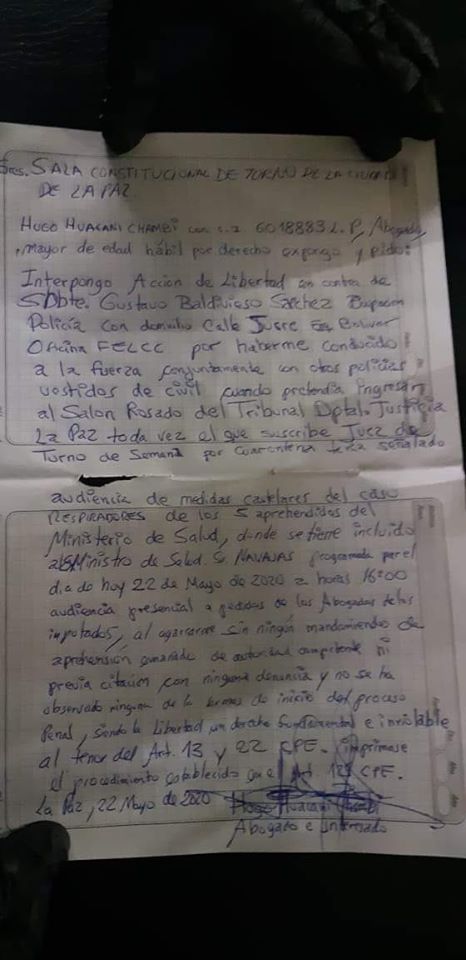 Sres. SALA CONSTITUCIONAL DE TURNO DE LA CIUDAD
DE LA PAZ.
HUGO HUACANI CHAMBI con c.i. 6018883 L.P, Abogado,
mayor de edad hábil por derecho expongo y pido:
Interpongo Acción de Libertad en contra de
Sbbte. Gustavo Baldivieso Sanchez
Policía con domicilio Calle Sucre Esq Bolivar
Oficina FELCC por haberme conducido
a la fuerza conjuntamente con otros policias
vestidos de civil cuando pretendia Ingresar
al Salon Rosado del Tribunal Dptal. Justicia
La Paz toda vez el que suscribe Juez de
Turno de Semana por cuarentena señalado
audiencia de medidas cautelares del caso
RESPIRADORES de los 5 aprehendidos del
Ministerio de Salud, donde se tiene incluido
al Ministro de Salud. S. NAVAJAS programada para el
dia de hoy 22 de Mayo de 2020 a horas 16:00
audiencia presencial a pedidos de los Abogados de los
imputados, al agarrarme sin ningún mandamiento de
aprehensión emanado de autoridad competente ni
previa citación con ninguna denuncia y no se ha
observado ninguna de la formas de inicio del proceso
Penal, siendo la Libertad un derecho fundamental e inviolable
al tenor del Art. 13 y 22 CPE. imprimase
el procedimiento establecido que el Art CPE.
La Paz, 22 Mayo de 2020 Hugo Huacani Chambi
Abogado e Interesado